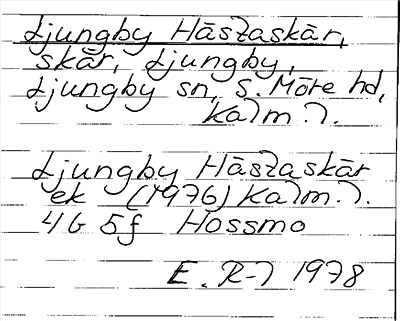 Ljungby Hāszaskār,
skār, Ljungby,
Ljungby sn, S. Möre hd,
Kalm. l.
Ljungby Hāszaskār
ek (1976) Kalm. l.
4G 5f Hossmo
E. R-l 1978